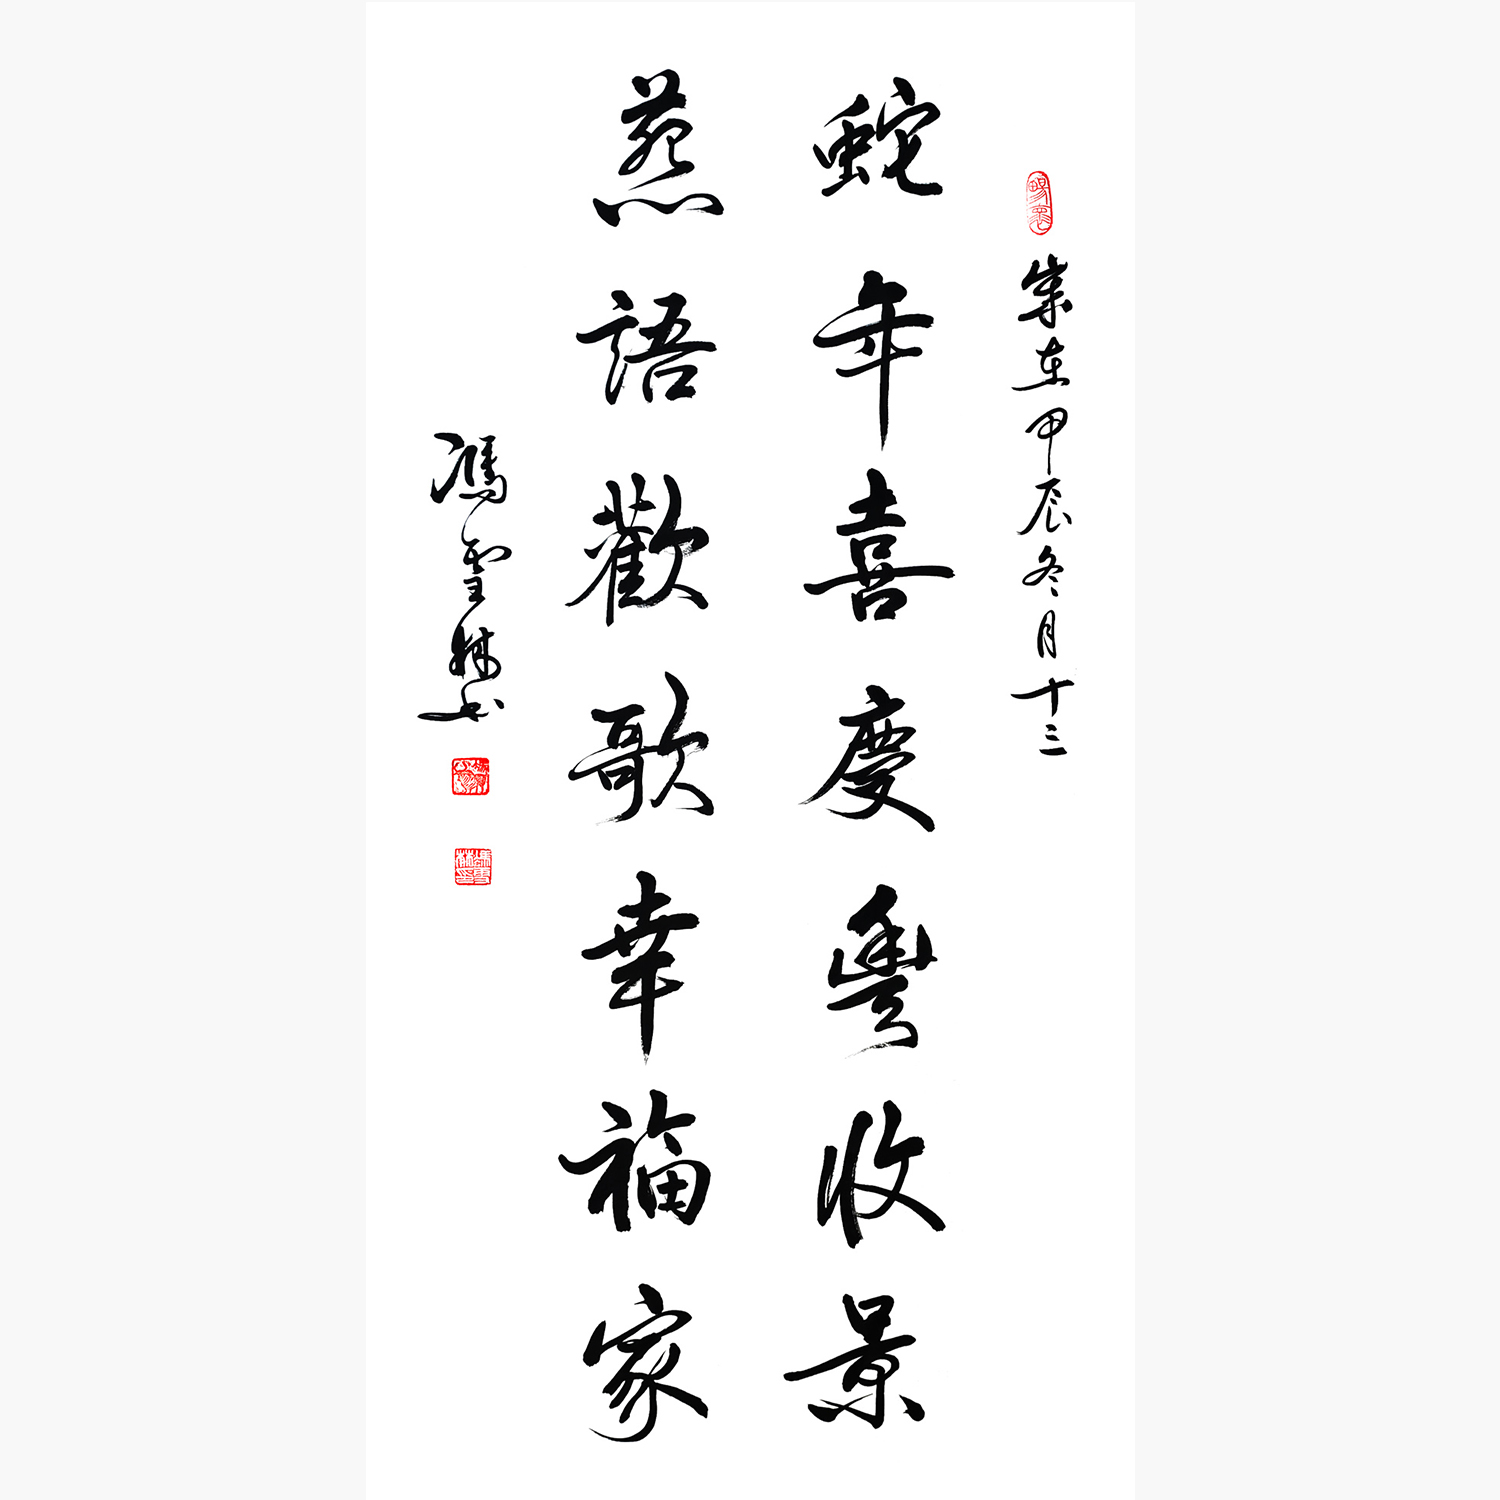 歲在甲辰冬月十三
蛇年喜慶豐收景
燕語歡歌幸福家
馮雪林書